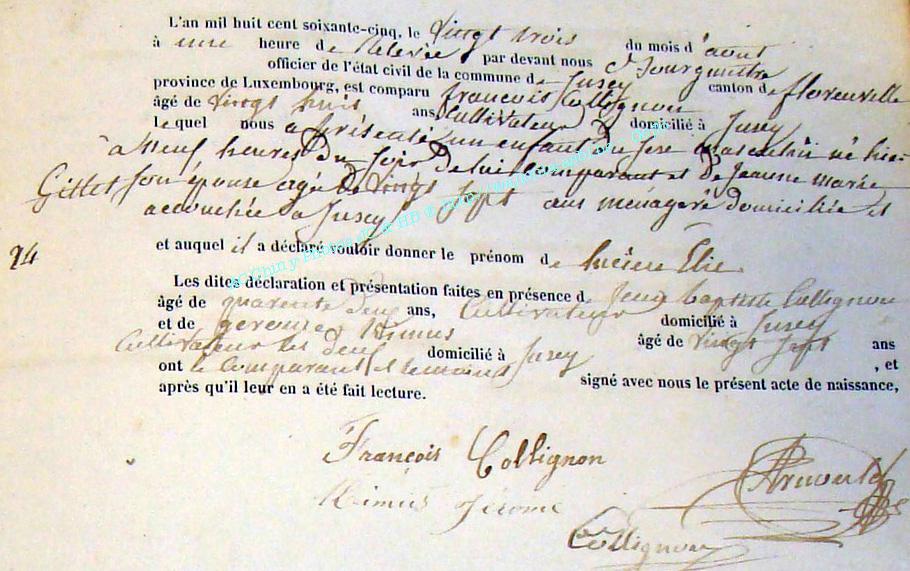 L'an mil huit cent soixante-cinq, le vingt trois du mois d'aout
à une heure de relevée par devant nous
officier de l'état civil de la commune de Jusey canton de florenville
province de Luxembourg, est comparu françois Collignon
âgé de vingt huit ans Cultivateur domicilié à Jusey
lequel nous a présenté un enfant du sexe masculin né hier
à neuf heures du soir de lui comparant et de Jeanne marie
Gillet son épouse agée de vingt sept ans ménagère domiciliée et
accouchée à Jusey
24
et auquel il a déclaré vouloir donner le prénom de Elie
Les dites déclaration et présentation faites en présence de Jean baptiste Collignon
âgé de quarente deux ans, Cultivateur domicilié à Jusey
et de Himus âgé de vingt sept ans
Cultivateur les deux domicilié à Jusey
ont le Comparant et temoins , et
signé avec nous le présent acte de naissance,
après qu'il leur en a été fait lecture.
François Collignon
Himus Jérome
Collignon